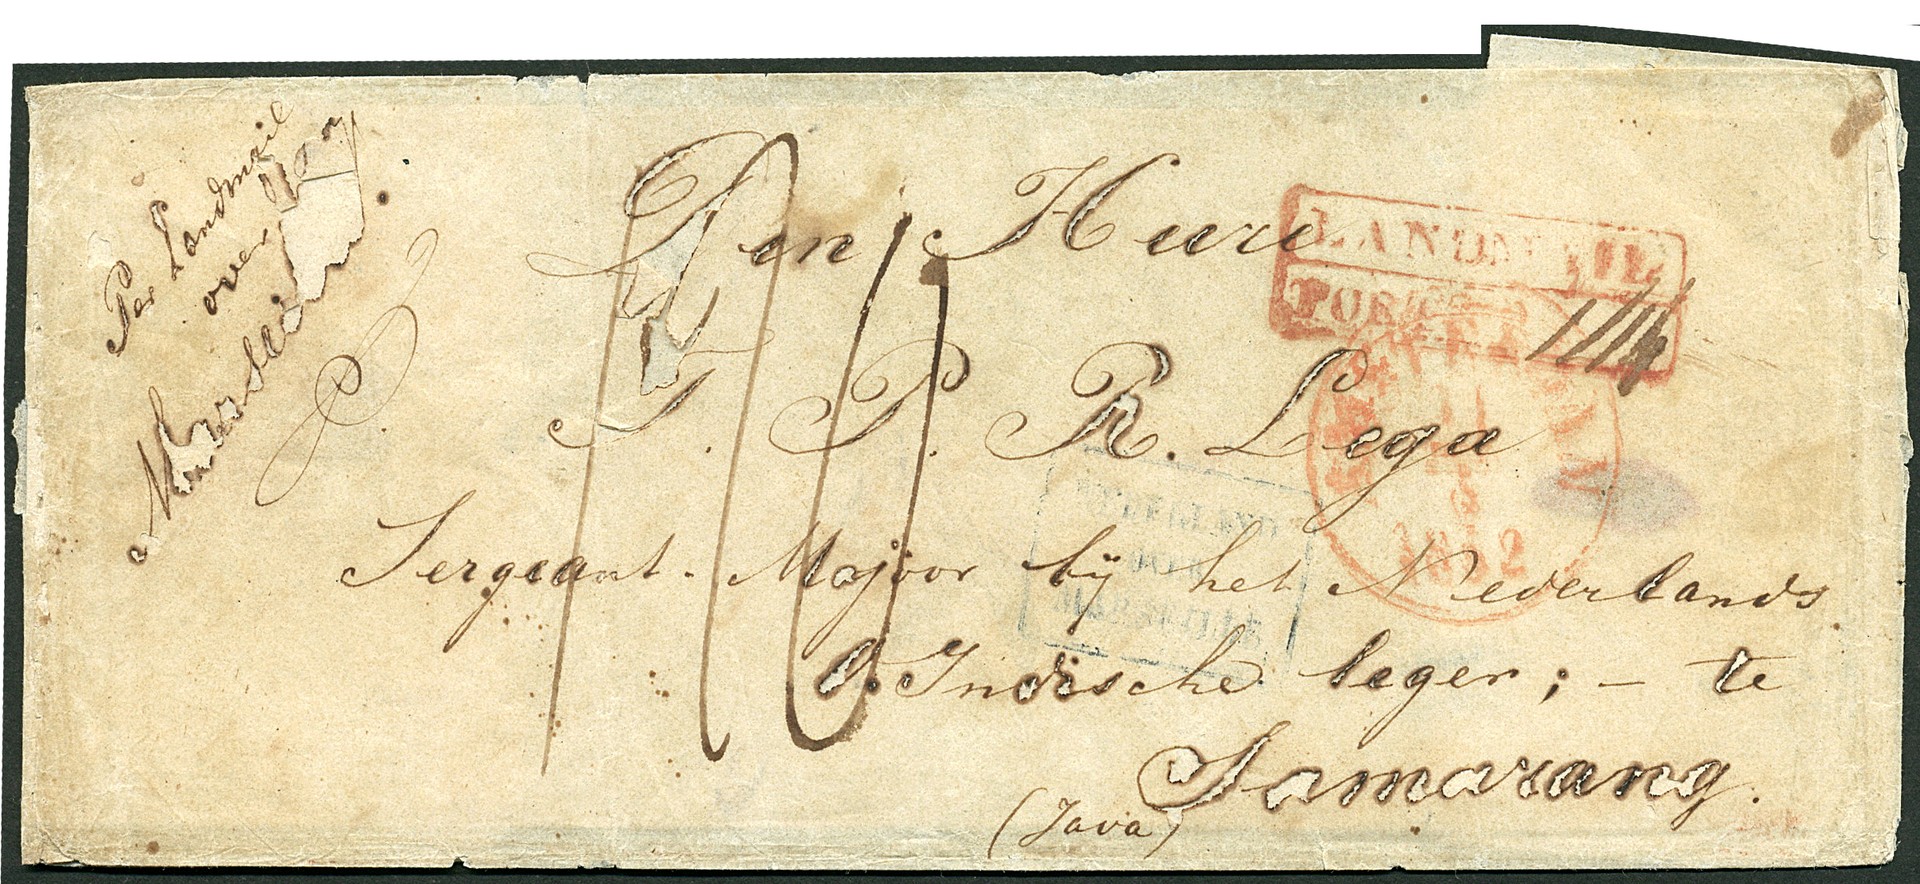 Per Landmail
over
Marseille
Den Heere
LANDMAIL
PORT
J. P. R. Lega
1852
Sergeant-Majoor bij het Nederlands
NEDERLAND
DOOR
MARSEILLE
O. Indische leger; — te
Samarang.
(Java)